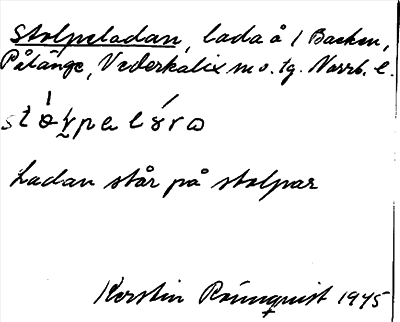 Stolpeladan, lada å 1 Backen,
Påläng, Nederkalix sn o. tg. Norrb. l.
Ladan står på stolpar
Kerstin Rönnquist 1945